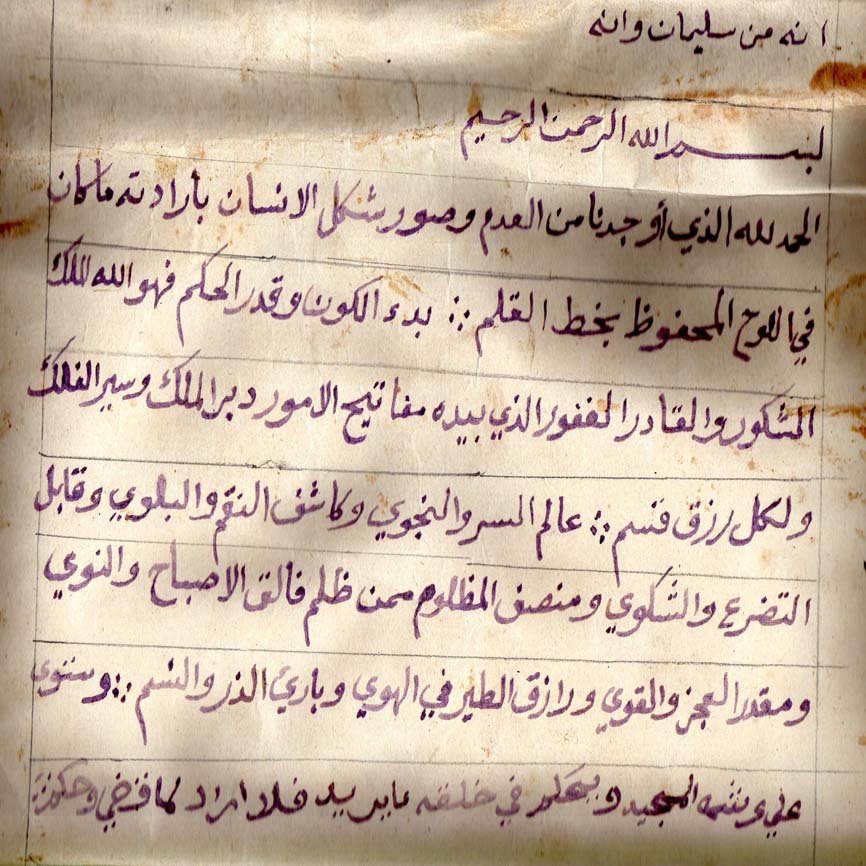 انه من سليمان وانه
بسم الله الرحمن الرحيم
الحمد لله الذي أوجدنا من العدم وصور شكل الانسان بأرادته ماكان
في اللوح المحفوظ بخط القلم :: بدء الكون وقدر الحكم فهو الله الملك
الشكور والقادر الغفور الذي بيده مفاتيح الامور دبر الملك وسير الفلك
ولكل رزق قسم :: عالم السر والنجوي وكاشف النقم والبلوي وقابل
التضرع والشكوي ومنصف المظلوم ممن ظلم فالق الاصباح والنوي
ومقدر العجز والقوي ورازق الطير في الهوي وبارئ الذر والنسم :: وستوي
علي عرشه المجيد ويحكم في خلقه مايريد فلا راد لما قضي وحكم ::